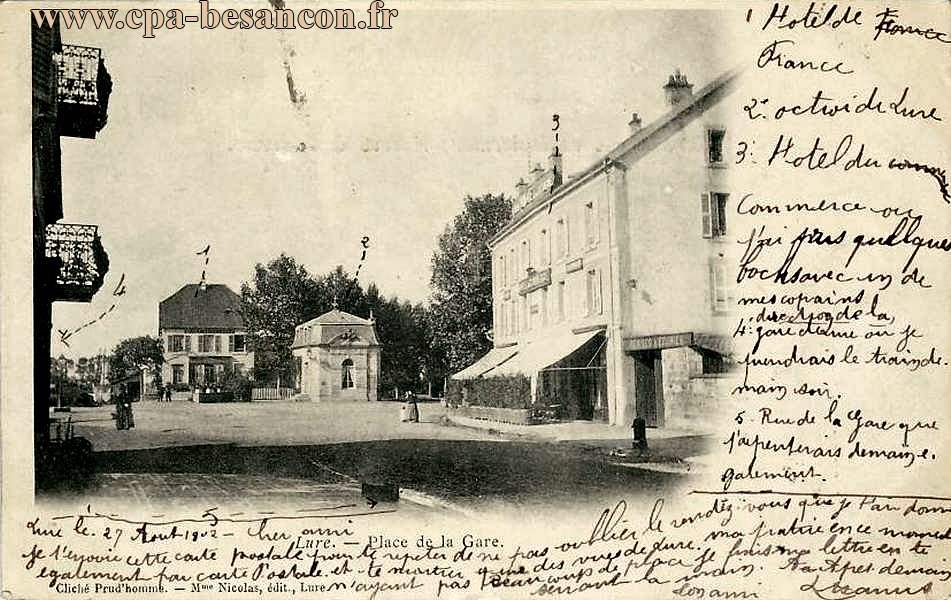 www.cpa-besancon.fr
1 Hotel de France
France
2º octroi de Lure
3º Hotel du comme
Commerce ou
j'ai pris quelques
bocks avec un de
mes copains
direction de la
4º gare de Lure où je
prendrais le train de
main soir.
5. Rue de la Gare que
j'arpenterais demain e.
galement.
1
2
3
4
5
Lure le 27 Aout 1902 - Cher ami
Lure. — Place de la Gare.
Je t'envoie cette carte postale pour te répéter de ne pas oublier le rendez-vous que je t'ai donné
également par carte Postale et te montrer une des vues de Lure, ma
n'ayant pas beaucoup de place je finis ma lettre en te
serrant la main. A après demain
ton ami
Cliché Prud'homme. — Mme Nicolas, édit., Lure